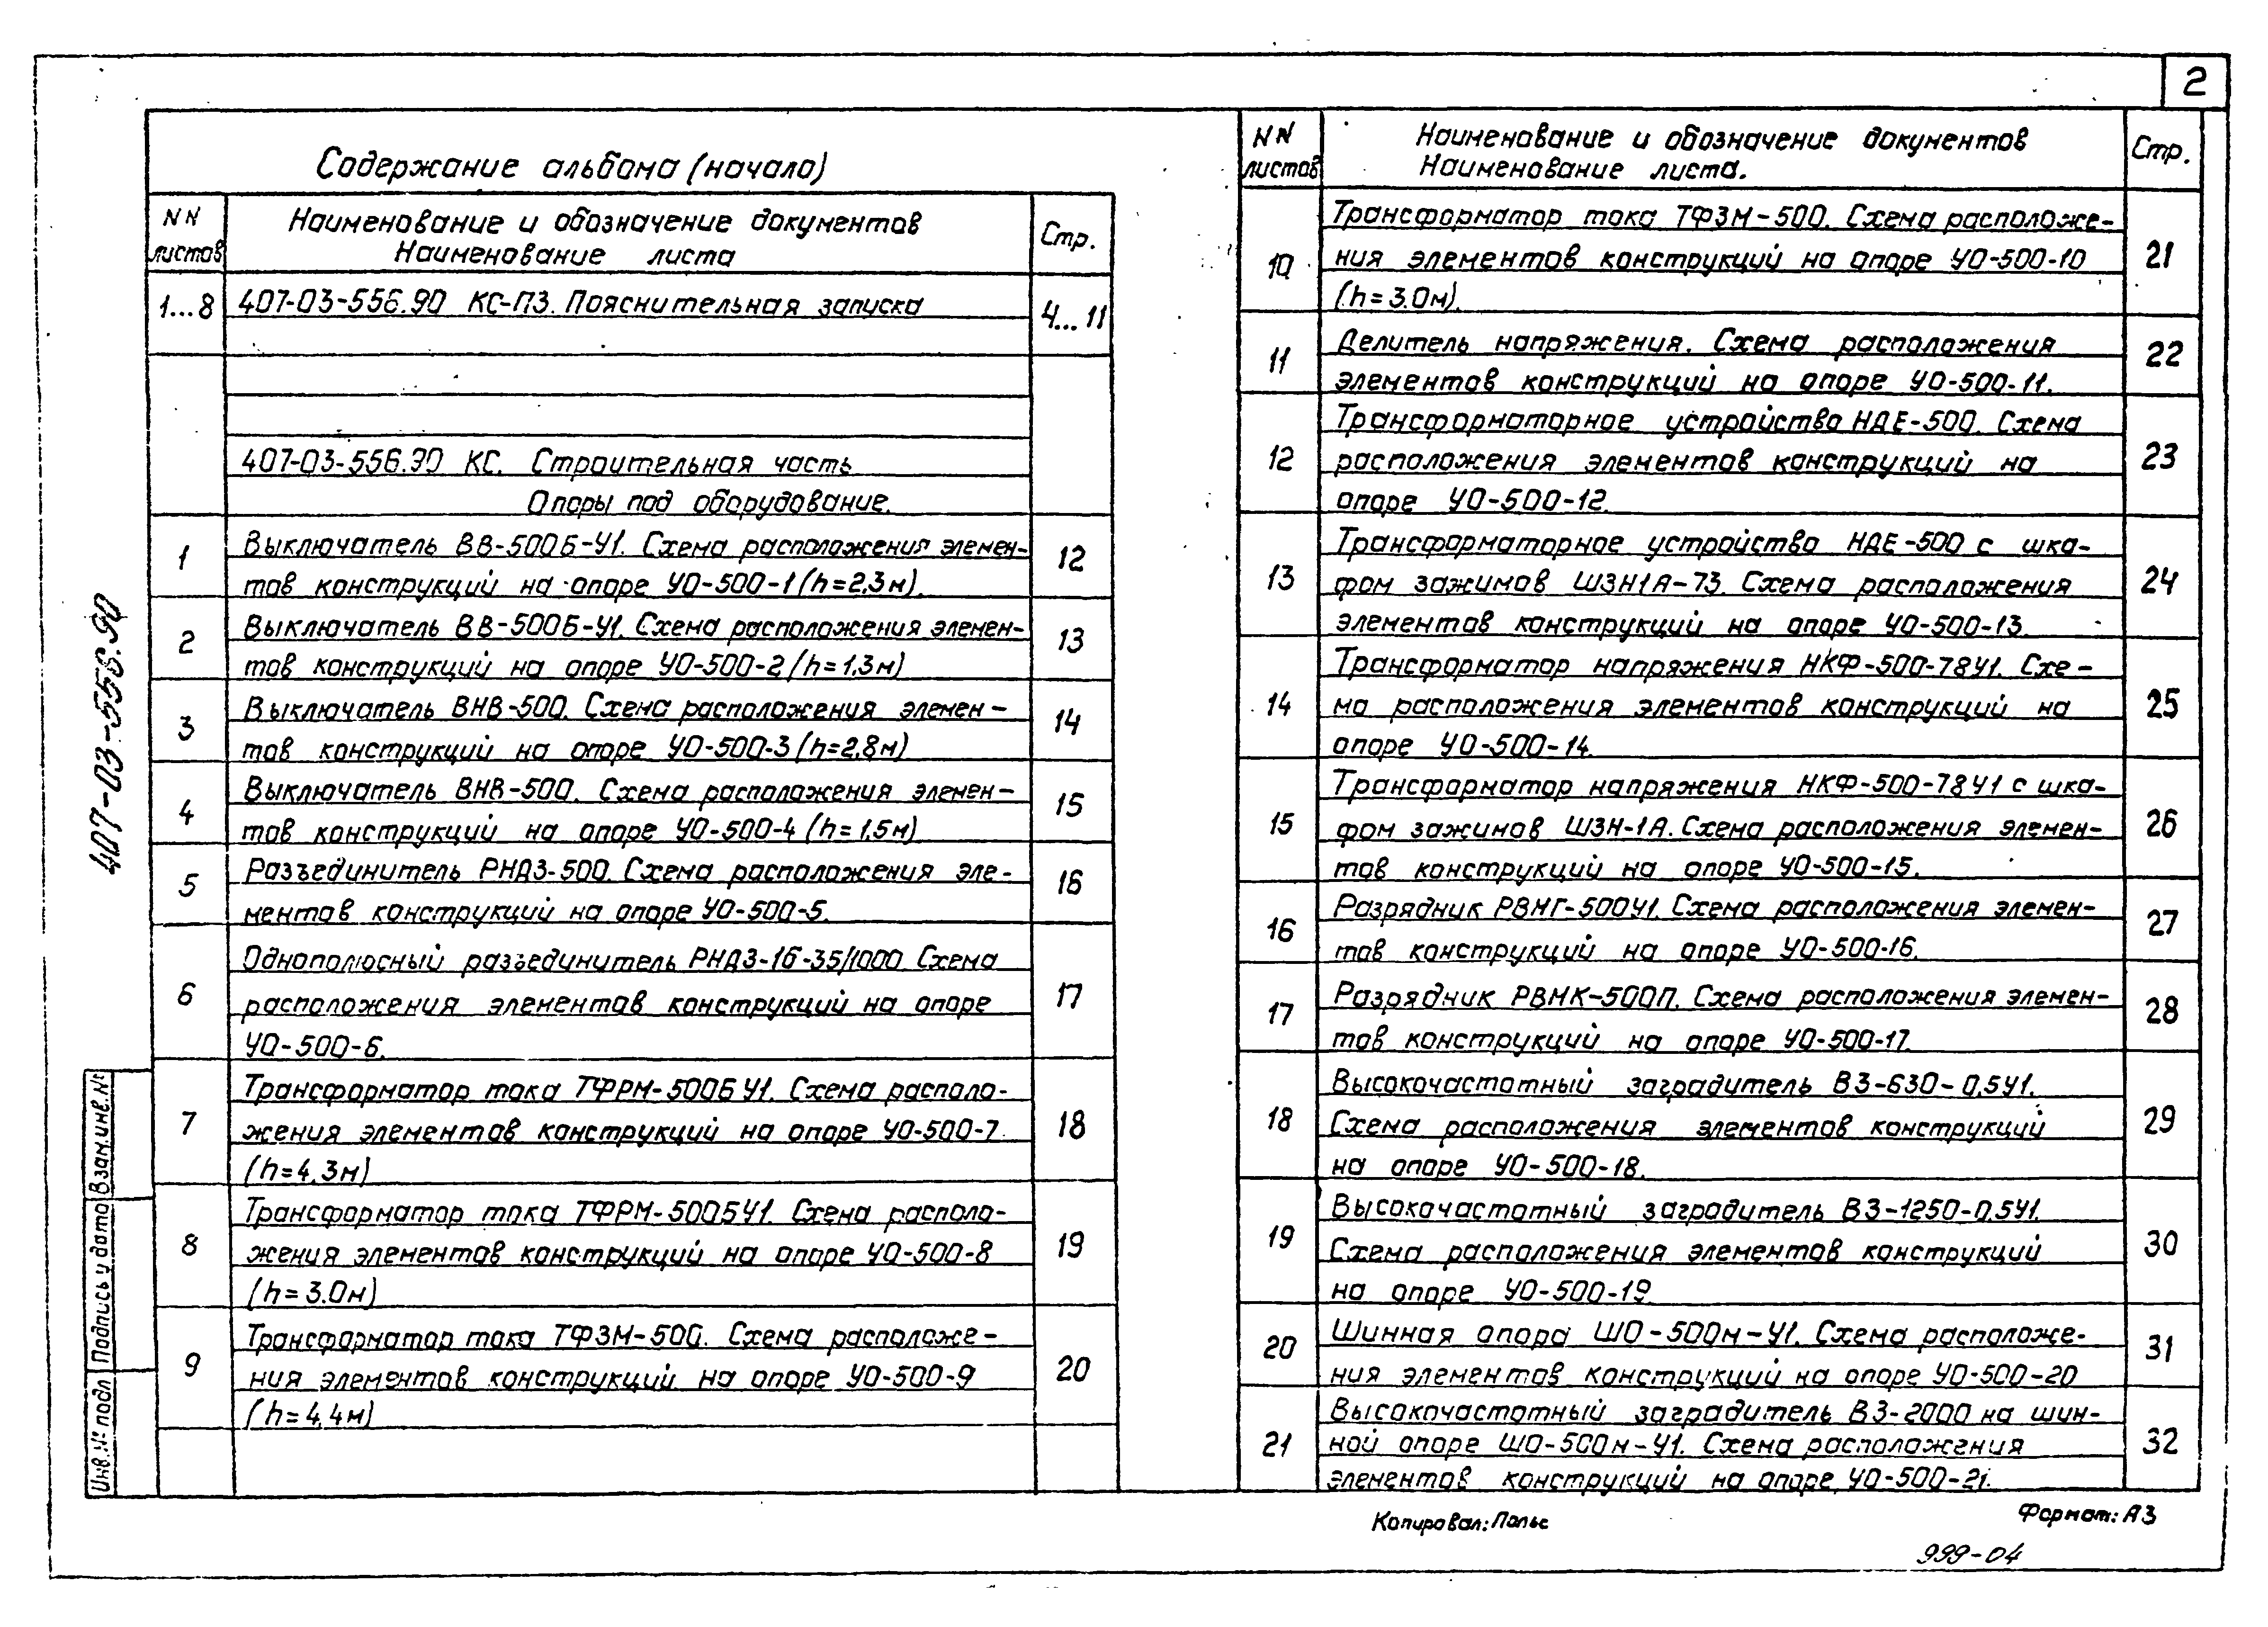 2
Содержание альбома (начало)
NN листов
Наименование и обозначение документов
Наименование листа
Стр.
1...8
407-03-556.90 КС-ПЗ. Пояснительная записка
4...11
407-03-556.90 КС. Строительная часть
Опоры под оборудование.
1
Выключатель ВВ-500Б-У1. Схема расположения элемен-
тов конструкций на опоре УО-500-1 (h=2,3м).
12
2
Выключатель ВВ-500Б-У1. Схема расположения элемен-
тов конструкций на опоре УО-500-2 (h=1,3м)
13
3
Выключатель ВНВ-500. Схема расположения элемен-
тов конструкций на опоре УО-500-3 (h=2,8м)
14
4
Выключатель ВНВ-500. Схема расположения элемен-
тов конструкций на опоре УО-500-4 (h=1,5м)
15
5
Разъединитель РНДЗ-500. Схема расположения эле-
ментов конструкций на опоре УО-500-5.
16
6
Однополюсный разъединитель РНДЗ-1б-35/1000 Схема
расположения элементов конструкций на опоре
УО-500-6.
17
7
Трансформатор тока ТФРМ-500Б У1. Схема располо-
жения элементов конструкций на опоре УО-500-7
(h=4,3м)
18
8
Трансформатор тока ТФРМ-500Б У1. Схема располо-
жения элементов конструкций на опоре УО-500-8
(h=3.0м)
19
9
Трансформатор тока ТФЗМ-500. Схема расположе-
ния элементов конструкций на опоре УО-500-9
(h=4,4м)
20
NN
листов
Наименование и обозначение документов
Наименование листа.
Стр.
10
Трансформатор тока ТФЗМ-500. Схема расположе-
ния элементов конструкций на опоре УО-500-10
(h=3.0м).
21
11
Делитель напряжения. Схема расположения
элементов конструкций на опоре УО-500-11.
22
12
Трансформаторное устройство НДЕ-500. Схема
расположения элементов конструкций на
опоре УО-500-12.
23
13
Трансформаторное устройство НДЕ-500 с шка-
фом зажимов ШЗН1А-73. Схема расположения
элементов конструкций на опоре УО-500-13.
24
14
Трансформатор напряжения НКФ-500-78У1. Схе-
ма расположения элементов конструкций на
опоре УО-500-14.
25
15
Трансформатор напряжения НКФ-500-78 У1 с шка-
фом зажимов ШЗН-1А. Схема расположения элемен-
тов конструкций на опоре УО-500-15.
26
16
Разрядник РВМГ-500У1. Схема расположения элемен-
тов конструкций на опоре УО-500-16.
27
17
Разрядник РВМК-500П. Схема расположения элемен-
тов конструкций на опоре УО-500-17.
28
18
Высокочастотный заградитель ВЗ-630-0,5У1.
Схема расположения элементов конструкций
на опоре УО-500-18.
29
19
Высокочастотный заградитель ВЗ-1250-0,5У1.
Схема расположения элементов конструкций
на опоре УО-500-19
30
20
Шинная опора ШО-500м-У1. Схема расположе-
ния элементов конструкций на опоре УО-500-20
31
21
Высокочастотный заградитель ВЗ-2000 на шин-
ной опоре ШО-500м-У1. Схема расположения
элементов конструкций на опоре УО-500-21.
32
407-03-556.90
Взам.инв.№
Подпись и дата
Инв.№ подл
Копировал: Польс
Формат: А3
999-04